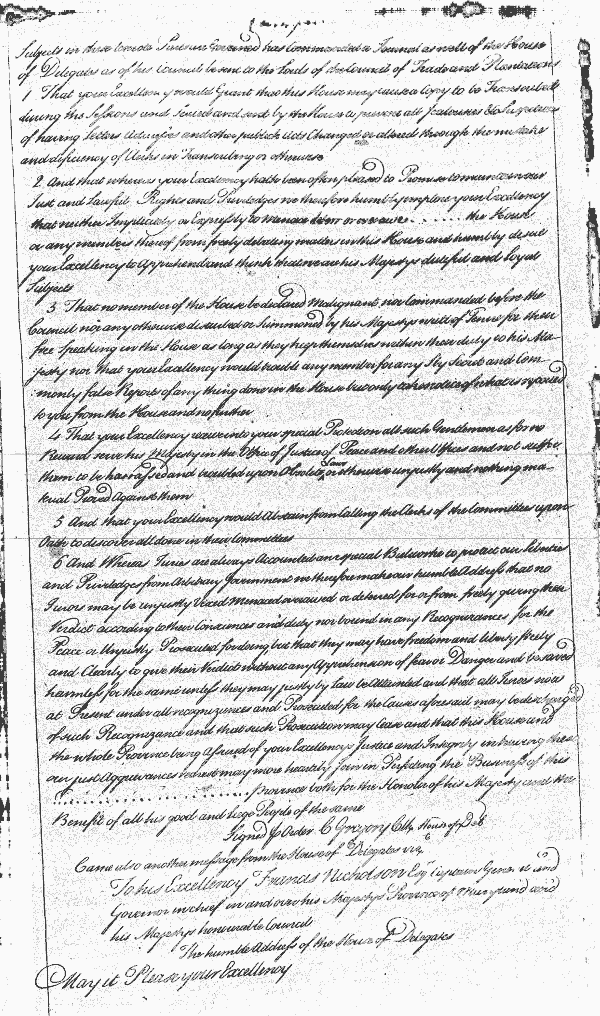 Subjects in these words Pursuant has Commanded a Journal as well of the House
of Delegates as of his Council be sent to the Lords of the Council of Trade and Plantations
1 That your Excellency would Grant that this House may cause a Copy to be Transcribed
during the Sessions and and sent by the House to prevent all Jealousies & Suspicions
of having Letters Addresses and other publick Acts Changed or altered through the mistake
and deficiency of Clerks in Transcribing or otherwise
2 And that whereas your Excellency hath been often pleased to Promise to our
Just and Lawful Rights and Priviledges we therefore humbly implore your Excellency
that neither Implicitely or Expressly to Menace deter or overawe . . . . . . . the House
or any member thereof from freely debating matters in this House and humbly desire
your Excellency to Apprehend and think that we are his Majestys dutiful and Loyal
Subjects
3 That no member of the House be declared Malignant nor Commanded before the
Council nor any otherwise disturbed or Summoned by his Majestys writt of for their
free Speaking in this House as long as they keep themselves within their duty to his Ma-
jesty nor that your Excellency would trouble any member for any Sly Secret and Com-
monly false Report of any thing done in the House but only take notice of what is reported
to you from the House and no further
4 That your Excellency would receive into your special Protection all such Gentlemen as for no
Reward serve his Majesty in the Office of Justice of Peace and other Offices and not suffer
them to be harrassed and troubled upon Obsolete Laws or otherwise unjustly and nothing ma-
terial Proved Against them
5 And that your Excellency would Abstain from Calling the Clerks of the Committees upon
Oath to discover all done in their Committees
6 And Whereas Juries are always Accounted an especial Bulworke to protect our Liberties
and Priviledges from Arbitrary Government we therefore make our humble Address that no
Jurors may be unjustly vexed Menaced overawed or deterred for or from freely giving their
Verdict according to their Consciences and duty nor bound in any Recognizances for the
Peace or Unjustly Prosecuted for doing but that they may have freedom and liberty freely
and Clearly to give their Verdict without any Apprehension of fear or Danger and be saved
harmless for the same unless they may justly by Law be Attainted and that all Jurors now
at Present under all recognizances and Prosecuted for the Causes aforesaid may be discharged
of such Recognizance and that such Prosecution may Cease and that this House and
the whole Province being Assured of your Excellencys Justice and Integrity in hearing these
our just Aggrievances redrest may more heartily Join in Perfecting the Business of this
. . . . . . . . . . . . . . . . . . Province both for the Honour of his Majesty and the
Benefit of all his good and Liege People of the same
Signed p Order C Gregory Clk House of Del
Came also another message from the House of Delegates viz
To his Excellency Francis Nicholson Esq Captain General and
Governor in chief in and over his Majestys Province of Maryland and
his Majestys honourable Council
The humble Address of the House of Delegates
May it Please your Excellency